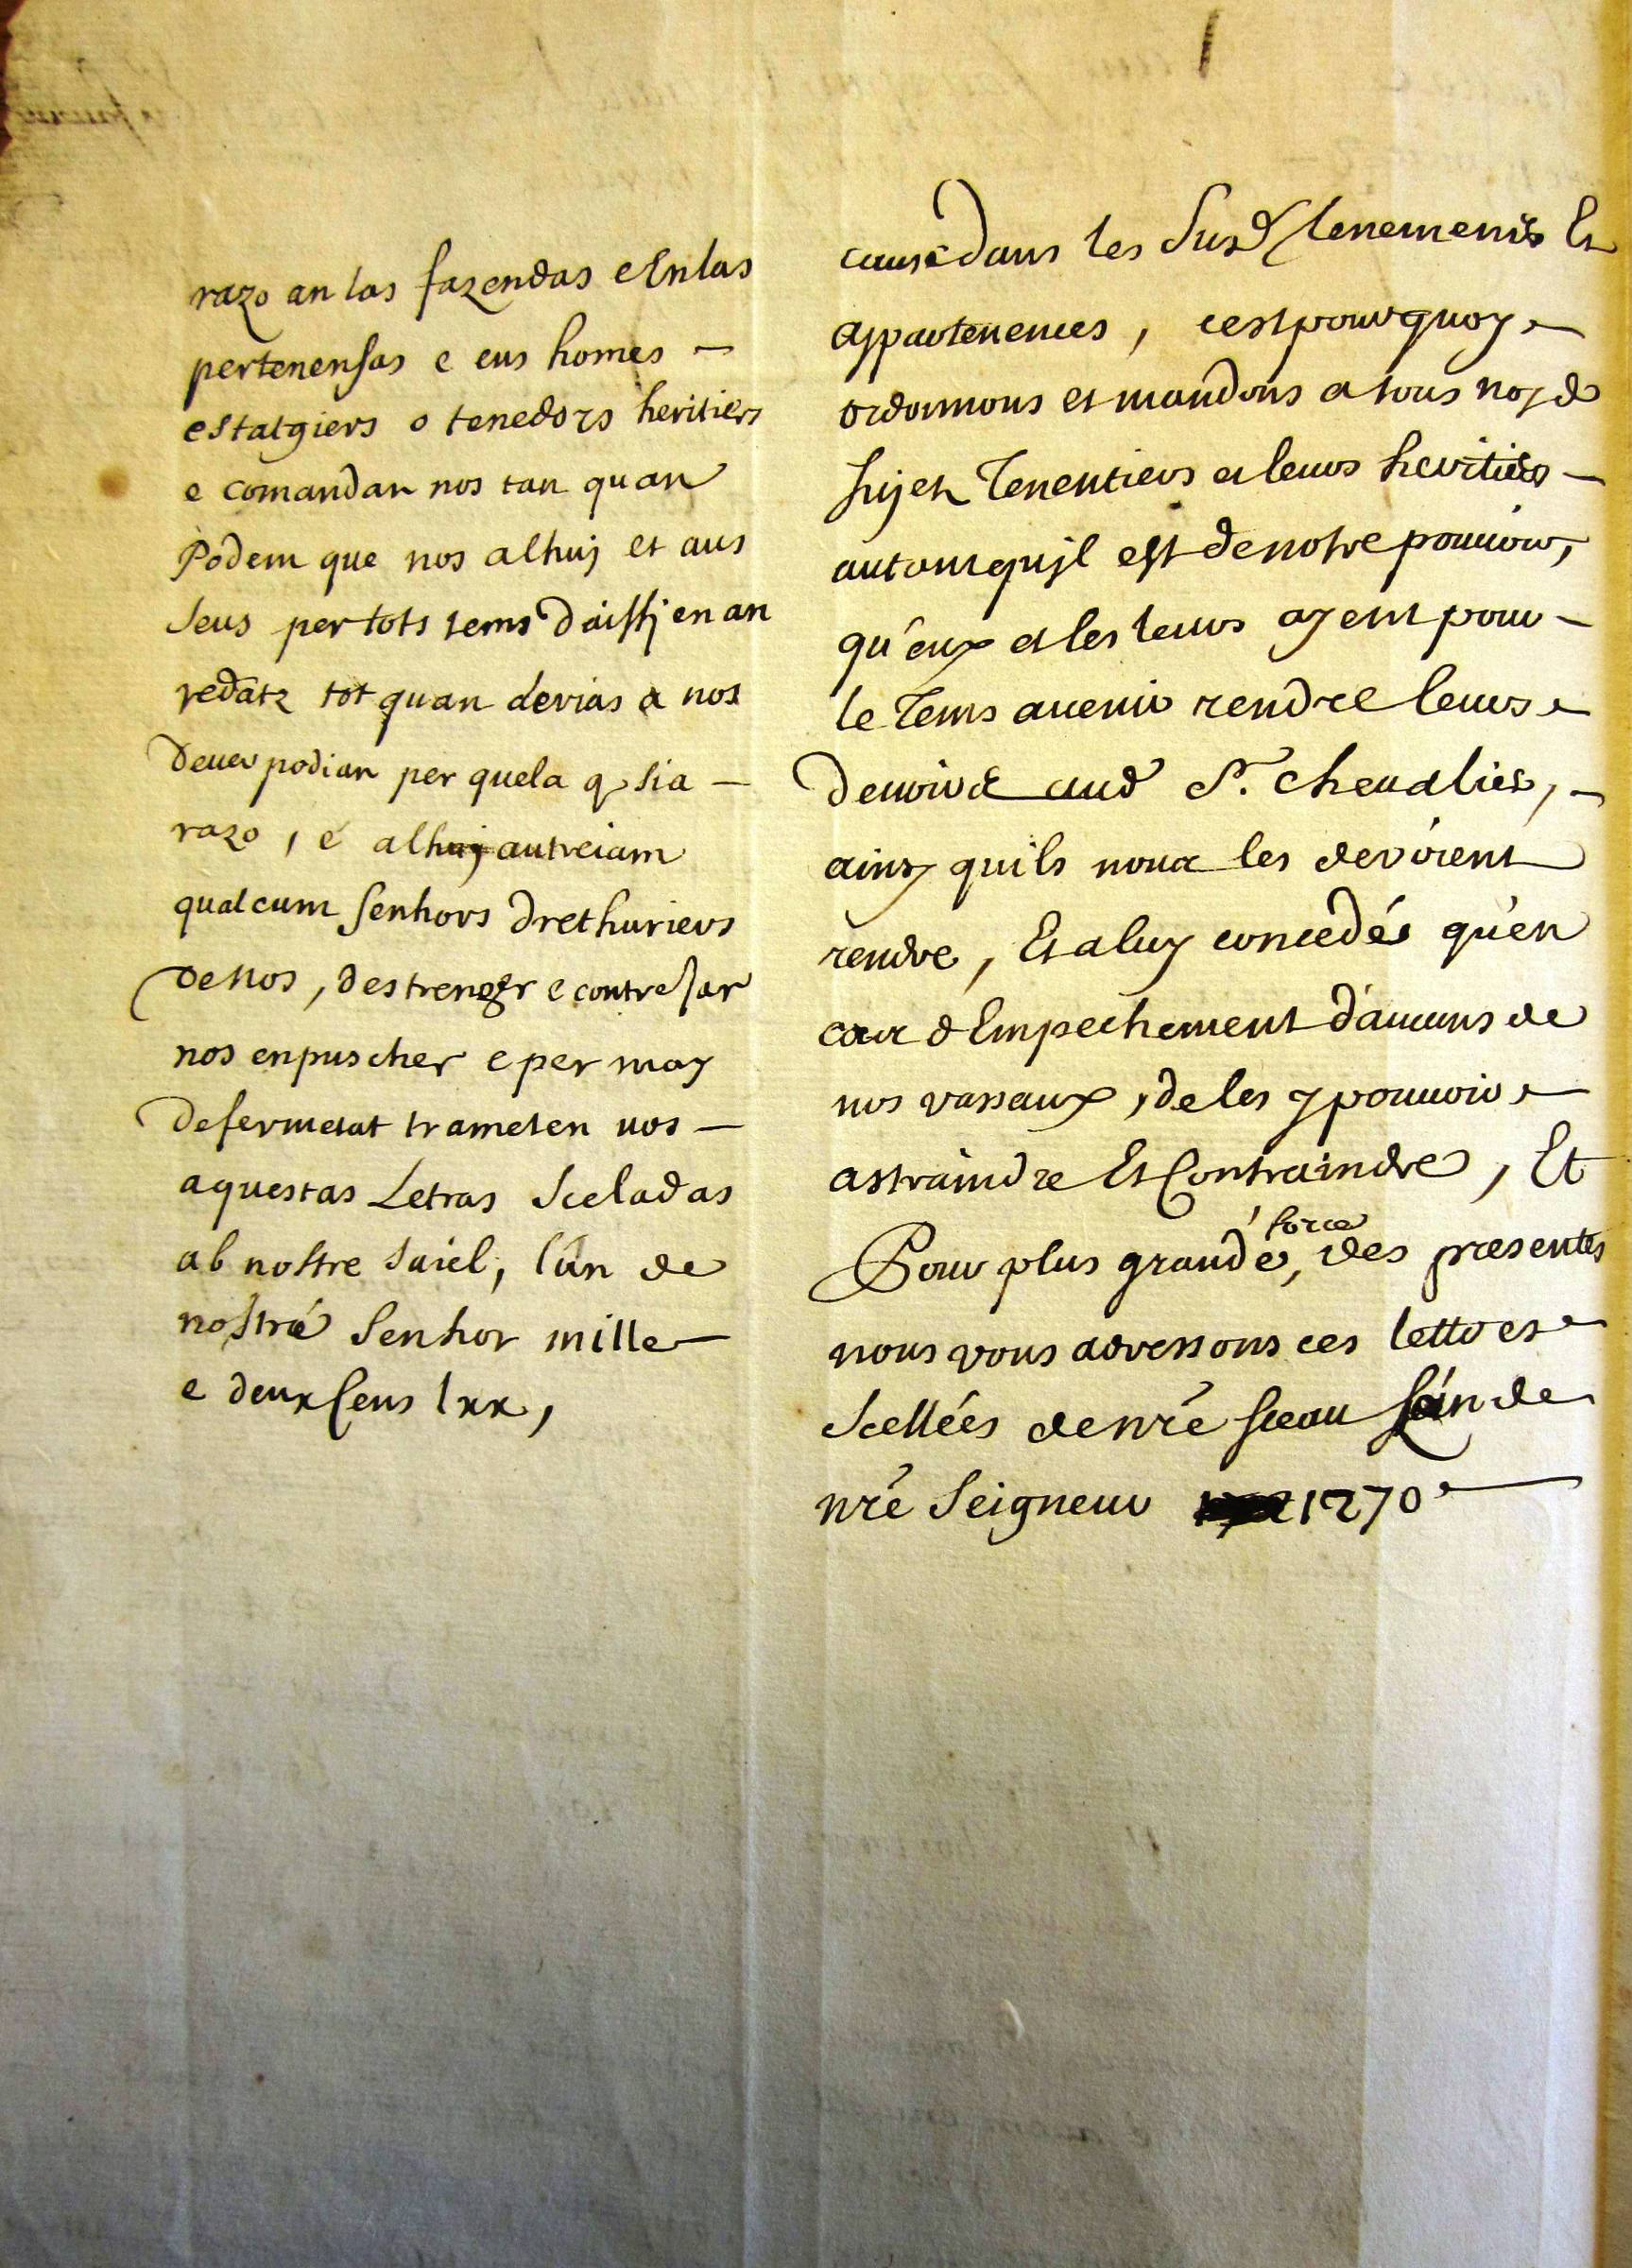 razo an las fazendas e En las
pertenensas e eus homes –
estatgiers o tenedors heritiers
e comandan nos tan quan
Podem que nos alhuj et aus
seus per tots tems d'aissj en an
redatz tot quan devias a nos
Dever podian per quela q sia –
razo, e alhuj autreiam
qual cum senhors drethuriers
de nos, destrenger e contresar
nos enpuscher e per may
de fermetat trameten vos –
aquestas Letras Sceladas
ab nostre saiel, l'an de
nostré Senhor mille –
e deux Cens lxx,
cause dans les Susd tenements Et
appartenences, cest pourquoy
ordonnons et mandons a tous nosd
sujets Tenentiers et leurs heritiers –
autant quil est de notre pouuoir,
qu'eux et les leurs ayent pour –
le Tems auenir rendre leurs
deuoirs aud Sr. Cheualier, –
ainsy quils nous les devoient
rendre, Et a luy concedés qu'en
cas d'Empechement d'aucuns de
nos vassaux, de les y pouuoir
astraindre Et Contraindre, Et
Pour plus grande force, des presentes
nous vous adressons ces lettres
Scellées de nré sceau L'an de
nré Seigneur 1270